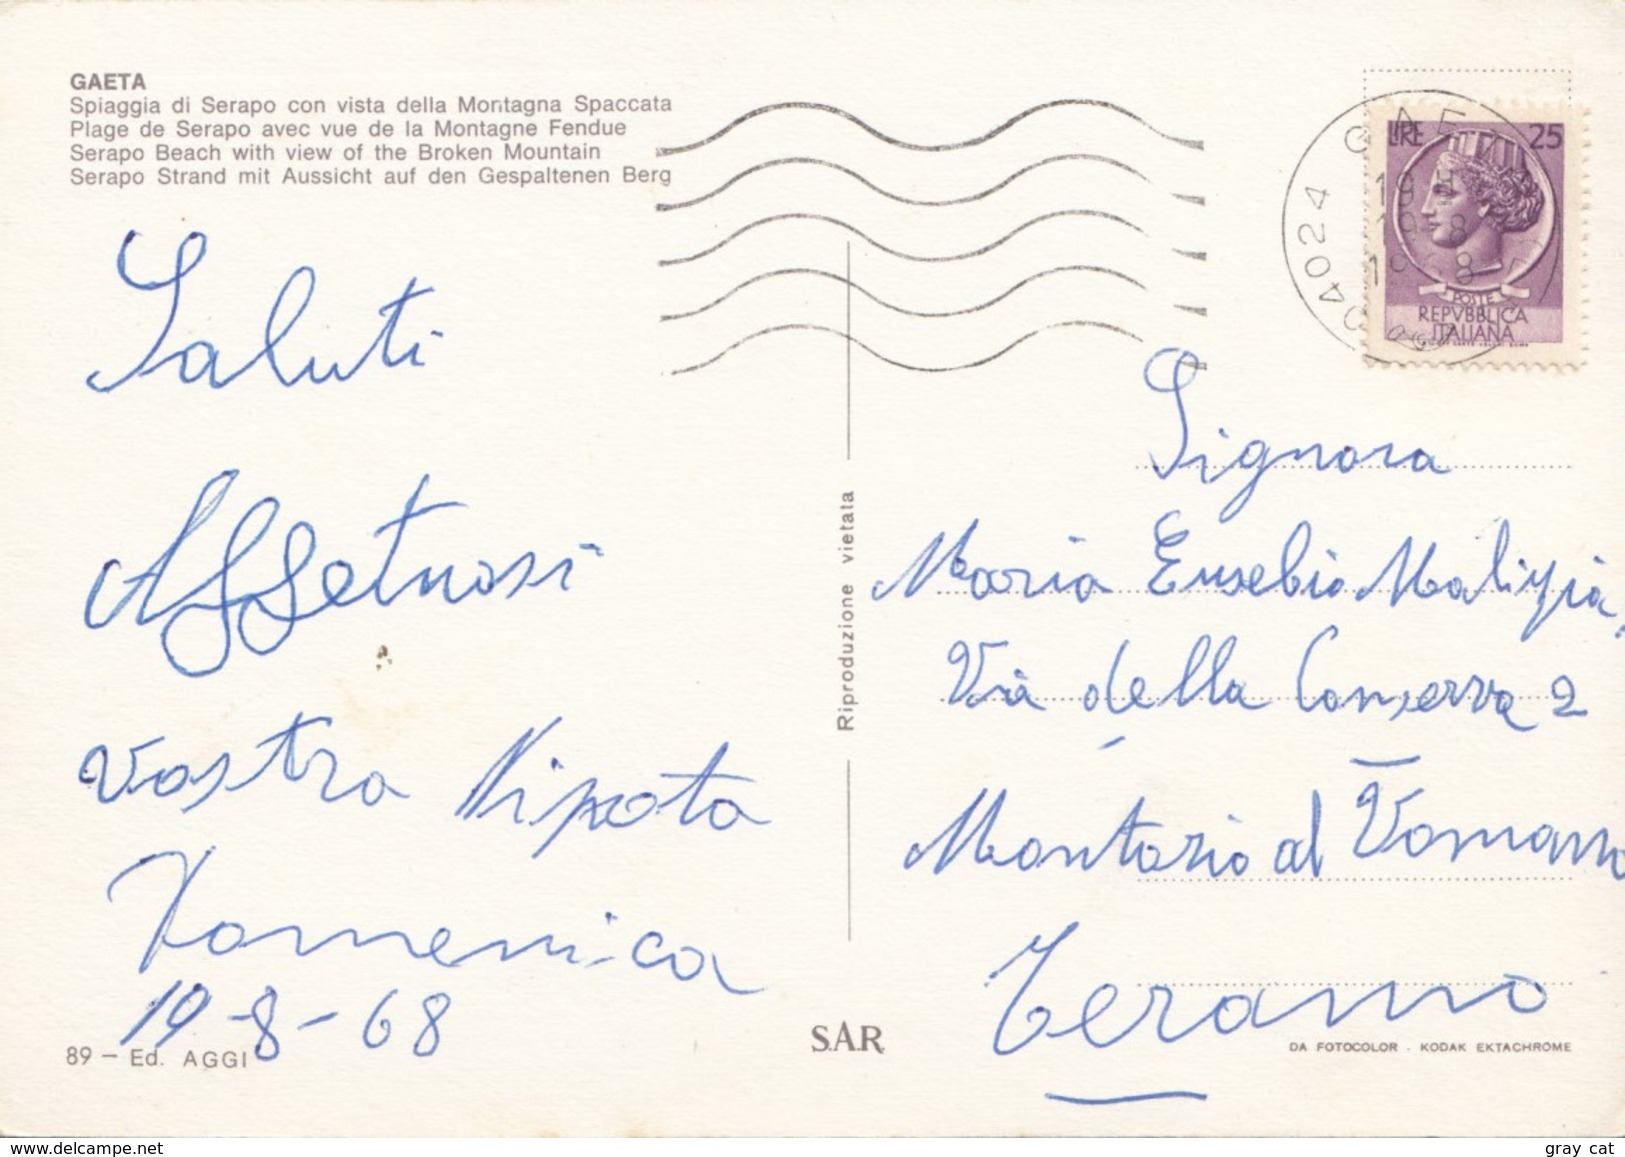 GAETA
Spiaggia di Serapo con vista della Montagna Spaccata
Plage de Serapo avec vue de la Montagne Fendue
Serapo Beach with view of the Broken Mountain
Serapo Strand mit Aussicht auf den Gespaltenen Berg
Saluti
Affettuosi
vostra Nipota
Domenica
19-8-68
89 - Ed. AGGI
Riproduzione vietata
S.A.R.
04024 GAETA
LIRE 25
POSTE
REPVBBLICA
ITALIANA
Signora
Maria Eusebio
Via della Conserva 2
Montorio al Vomano
Teramo
DA FOTOCOLOR - KODAK EKTACHROME
www.delcampe.net
gray cat